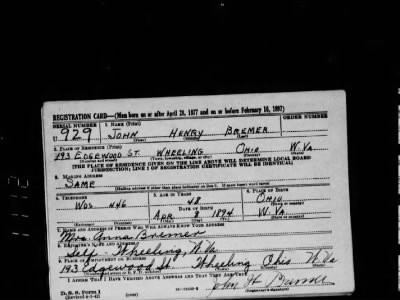 REGISTRATION CARD—(Men born on or after April 28, 1877 and on or before February 16, 1897)
SERIAL NUMBER 1. NAME (Print) ORDER NUMBER
U 929 JOHN HENRY BREMER
(First) (Middle) (Last)
2. PLACE OF RESIDENCE (Print)
193 EDGEWOOD ST. WHEELING OHIO W. VA.
(Number and street) (Town, township, village, or city) (County) (State)
[THE PLACE OF RESIDENCE GIVEN ON THE LINE ABOVE WILL DETERMINE LOCAL BOARD
JURISDICTION; LINE 2 OF REGISTRATION CERTIFICATE WILL BE IDENTICAL]
3. MAILING ADDRESS
SAME
[Mailing address if other than place indicated on line 2. If same insert word same]
4. TELEPHONE 5. AGE IN YEARS 6. PLACE OF BIRTH
48 OHIO
DATE OF BIRTH
WDS. 446 APR. 8 1894 W. VA.
7. NAME AND ADDRESS OF PERSON WHO WILL ALWAYS KNOW YOUR ADDRESS
Mrs. Anna Bremer
8. EMPLOYER'S NAME AND ADDRESS
Self - Wheeling, W. Va
9. PLACE OF EMPLOYMENT OR BUSINESS
193 Edgewood St. Wheeling Ohio W. Va
I AFFIRM THAT I HAVE VERIFIED ABOVE ANSWERS AND THAT THEY ARE TRUE.
D. S. S. Form 1
John H Bremer